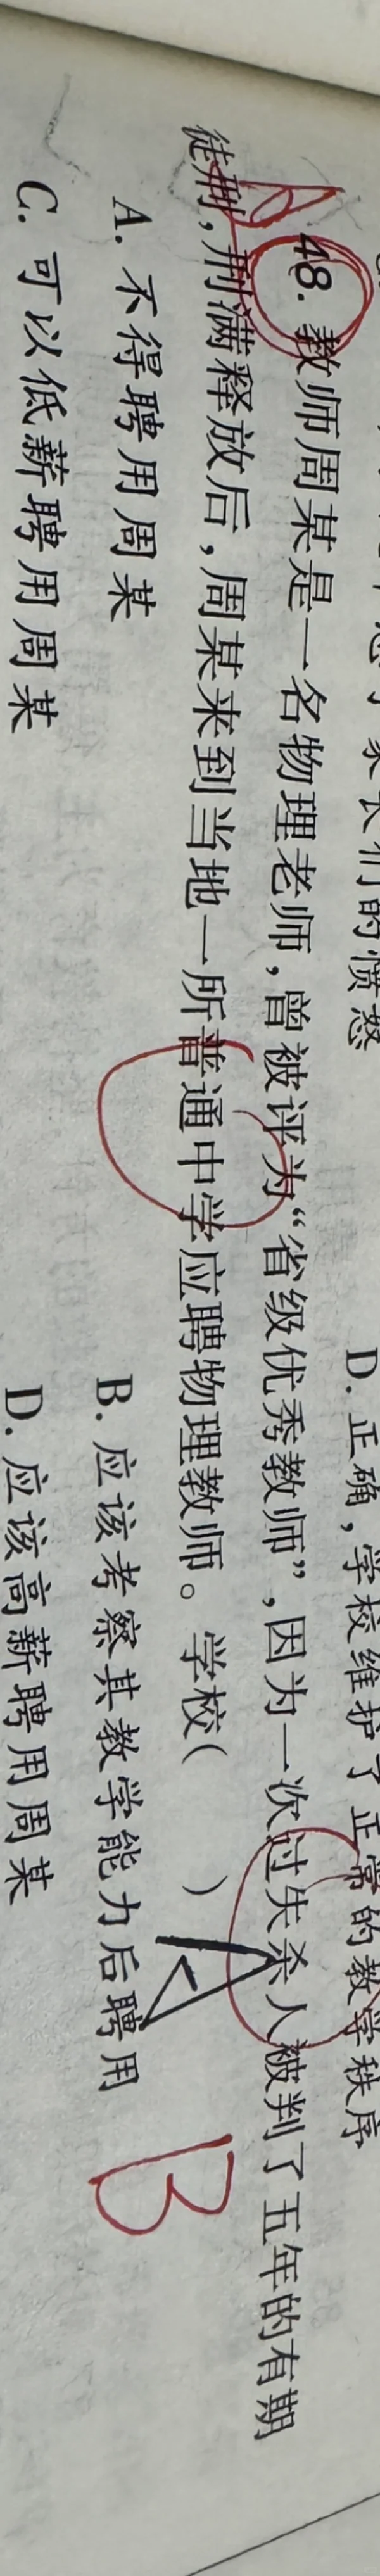 长们的愤怒
D. 正确,学校维护了正常的教学秩序
48. 教师周某是一名物理老师,曾被评为“省级优秀教师”,因为一次过失杀人被判了五年的有期
徒刑,刑满释放后,周某来到当地一所普通中学应聘物理教师。学校( )
A
B
A. 不得聘用周某 B. 应该考察其教学能力后聘用
C. 可以低薪聘用周某 D. 应该高薪聘用周某